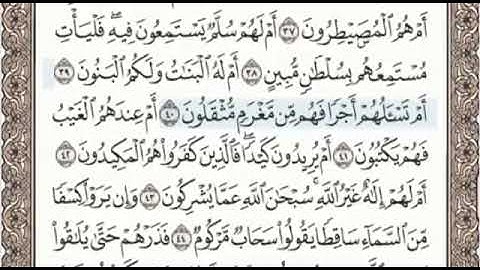 أَمْ هُمُ ٱلْمُصَۣيْطِرُونَ ٣٧ أَمْ لَهُمْ سُلَّمٌ يَسْتَمِعُونَ فِيهِ ۖ فَلْيَأْتِ
مُسْتَمِعُهُم بِسُلْطَٰنٍ مُّبِينٍ ٣٨ أَمْ لَهُ ٱلْبَنَٰتُ وَلَكُمُ ٱلْبَنُونَ ٣٩
أَمْ تَسْـَٔلُهُمْ أَجْرًا فَهُم مِّن مَّغْرَمٍ مُّثْقَلُونَ ٤٠ أَمْ عِندَهُمُ ٱلْغَيْبُ
فَهُمْ يَكْتُبُونَ ٤١ أَمْ يُرِيدُونَ كَيْدًا ۖ فَٱلَّذِينَ كَفَرُوا۟ هُمُ ٱلْمَكِيدُونَ ٤٢
أَمْ لَهُمْ إِلَٰهٌ غَيْرُ ٱللَّهِ ۚ سُبْحَٰنَ ٱللَّهِ عَمَّا يُشْرِكُونَ ٤٣ وَإِن يَرَوْا۟ كِسْفًا
مِّنَ ٱلسَّمَآءِ سَاقِطًا يَقُولُوا۟ سَحَابٌ مَّرْكُومٌ ٤٤ فَذَرْهُمْ حَتَّىٰ يُلَٰقُوا۟